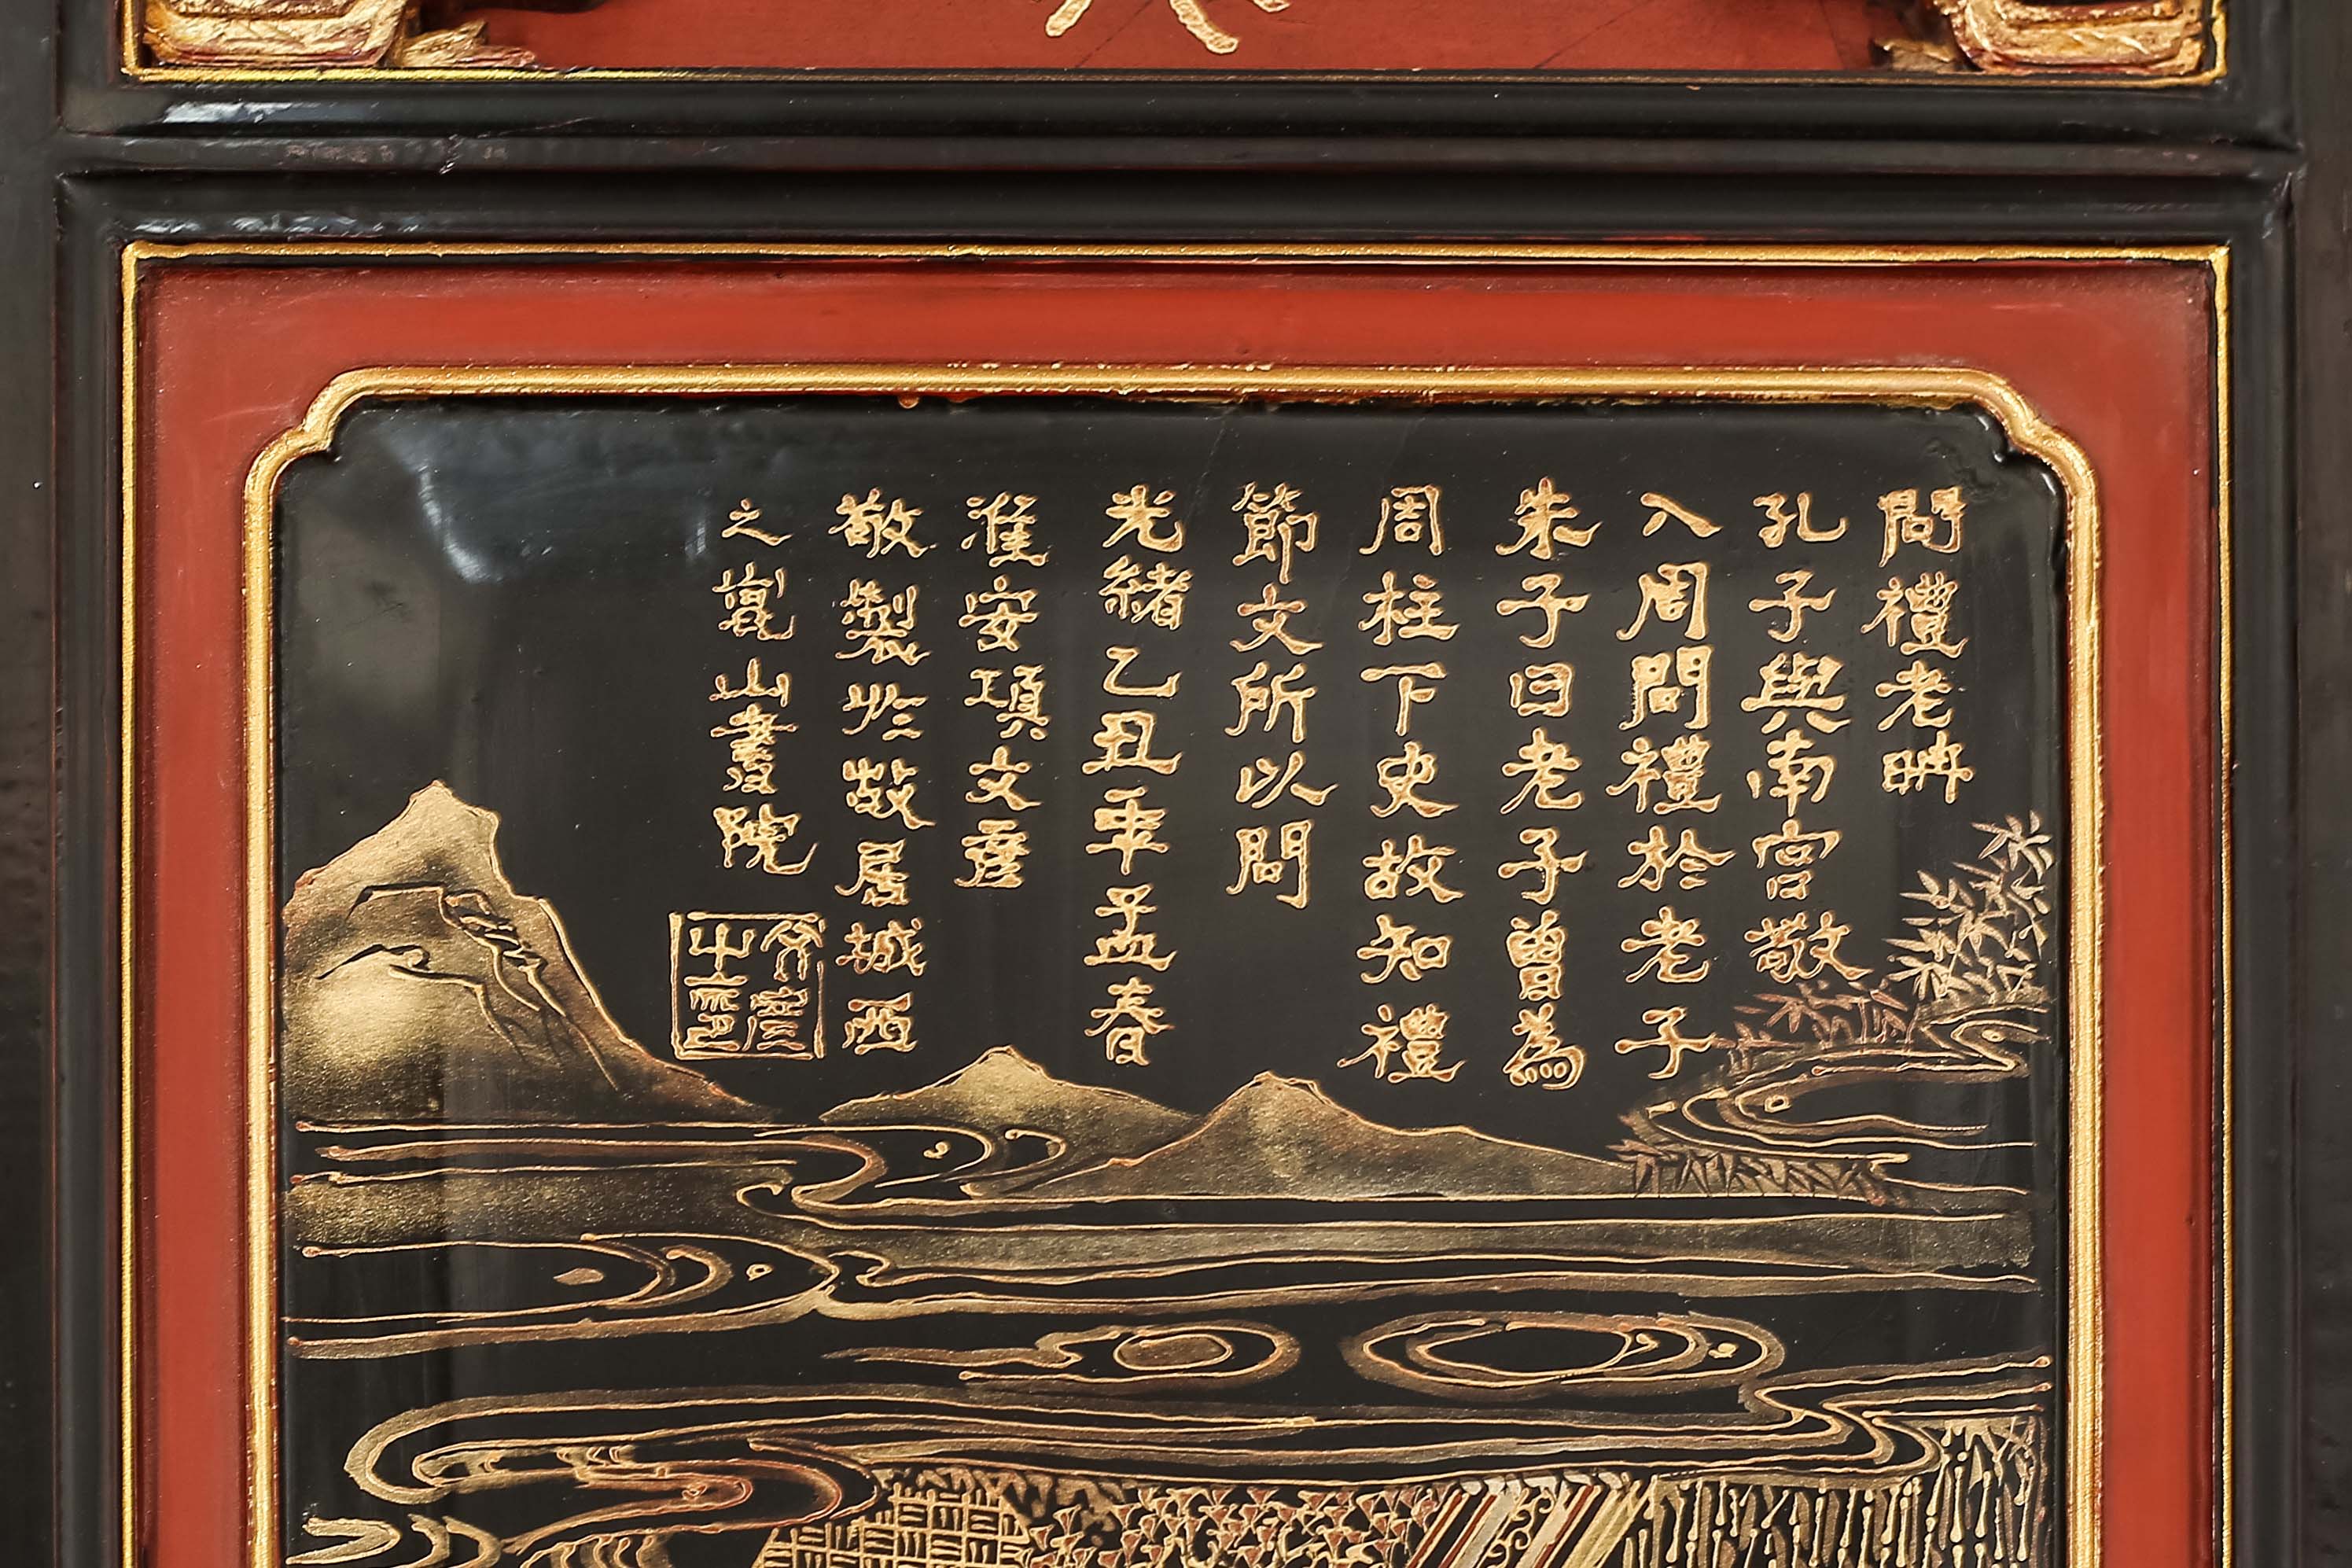 問禮老聃
孔子與南宮敬
入周問禮於老子
朱子曰老子曾為
周柱下史故知禮
節文所以問
光緒乙丑年孟春
淮安項文彥
敬製於故居城西
之山書院
文彥之印